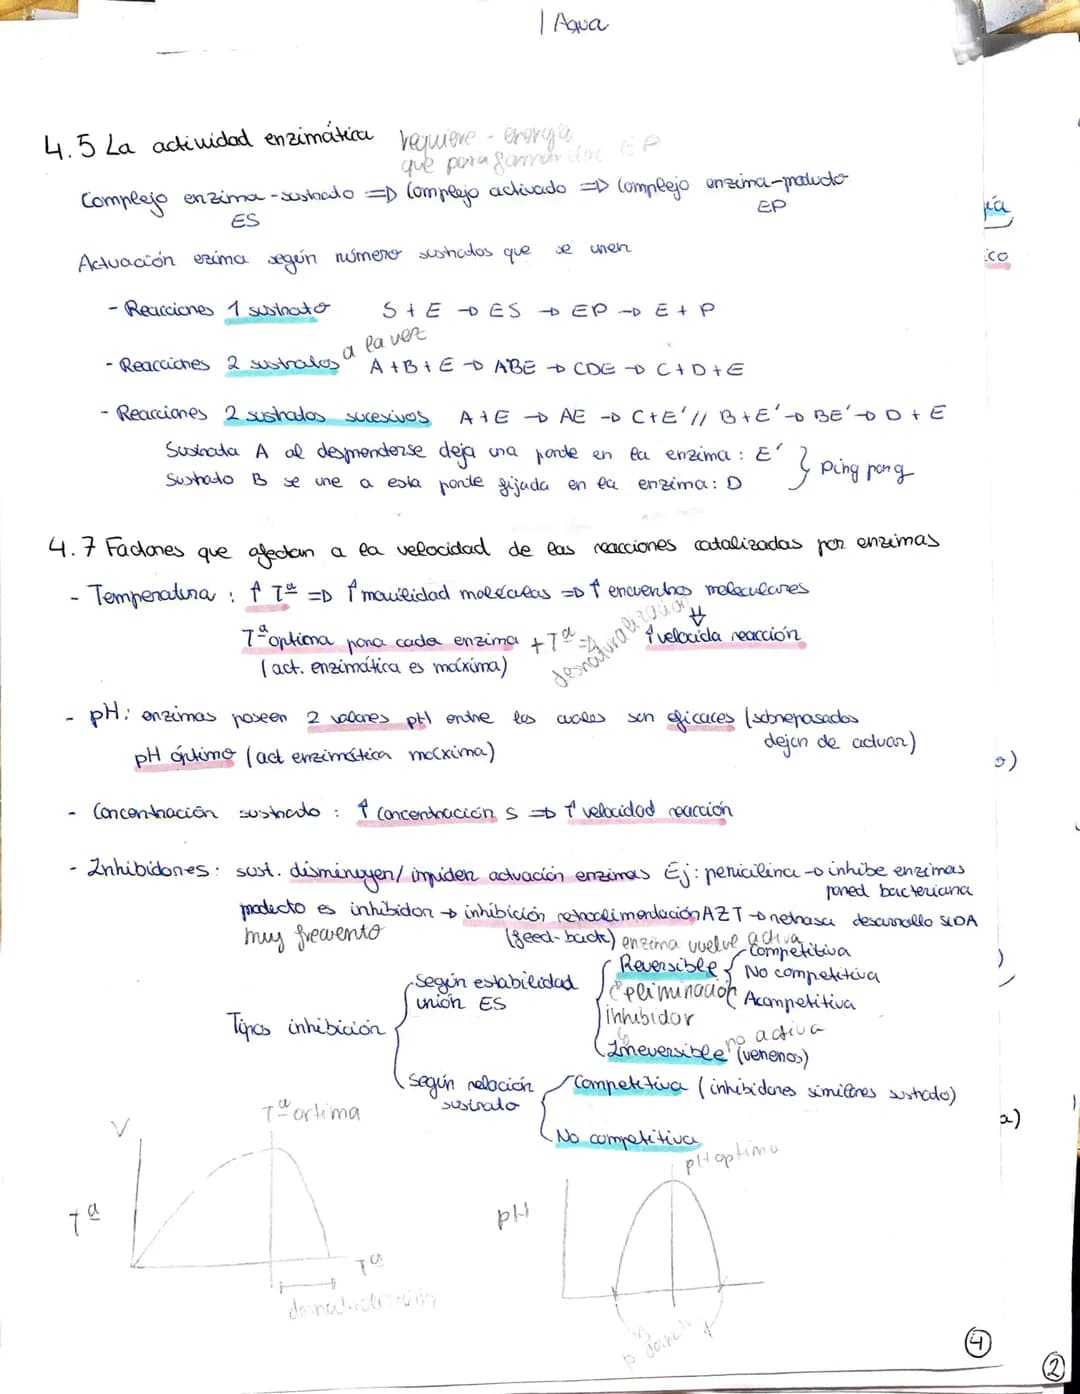 Agua
4.5 La actividad enzimática requiere - energía
que para formar EP
Complejo enzima-sustrato => Complejo activado => Complejo enzima-producto
ES EP
Actuación ezima según número sustratos que se unen
- Reacciones 1 sustrato S + E → ES → EP → E + P
a la vez
- Reacciones 2 sustratos A + B + E → ABE → CDE → C + D + E
- Reacciones 2 sustratos sucesivos A + E → AE → C + E' // B + E' → BE' → D + E
Sustrato A al desprenderse deja una parte en la enzima : E'
Sustrato B se une a esta parte fijada en la enzima : D } Ping pong
4.7 Factores que afectan a la velocidad de las reacciones catalizadas por enzimas
- Temperatura : ↑ Tª => ↑ movilidad moléculas => ↑ encuentros moleculares
⇓
Tª optima para cada enzima + Tª => desnaturalización ↑ velocida reacción
(act. enzimática es máxima)
- pH : enzimas poseen 2 valores pH entre los cuales son eficaces (sobrepasados
dejan de actuar)
pH óptimo (act enzimática máxima)
- Concentración sustrado : ↑ Concentración S => ↑ velocidad reacción
- Inhibidores : sust. disminuyen / impiden actuación enzimas Ej : penicilina → inhibe enzimas
pared bacteriana
producto es inhibidor → inhibición retroalimentación AZT → retrasa desarrollo SIDA
muy frecuento (feed-back) enzima vuelve activa
Tipos inhibición
Según estabilidad
unión ES
Reversible
eliminación
inhibidor
Competitiva
No competitiva
Acompetitiva
no activa
Irreversible (venenos)
Según relación
sustrato
Competitiva (inhibidores similares sustrado)
No competitiva
Tª optima
V
Tª
Tª
desnaturalización
pH optimo
pH
ía
ico
o)
)
a)
4
2